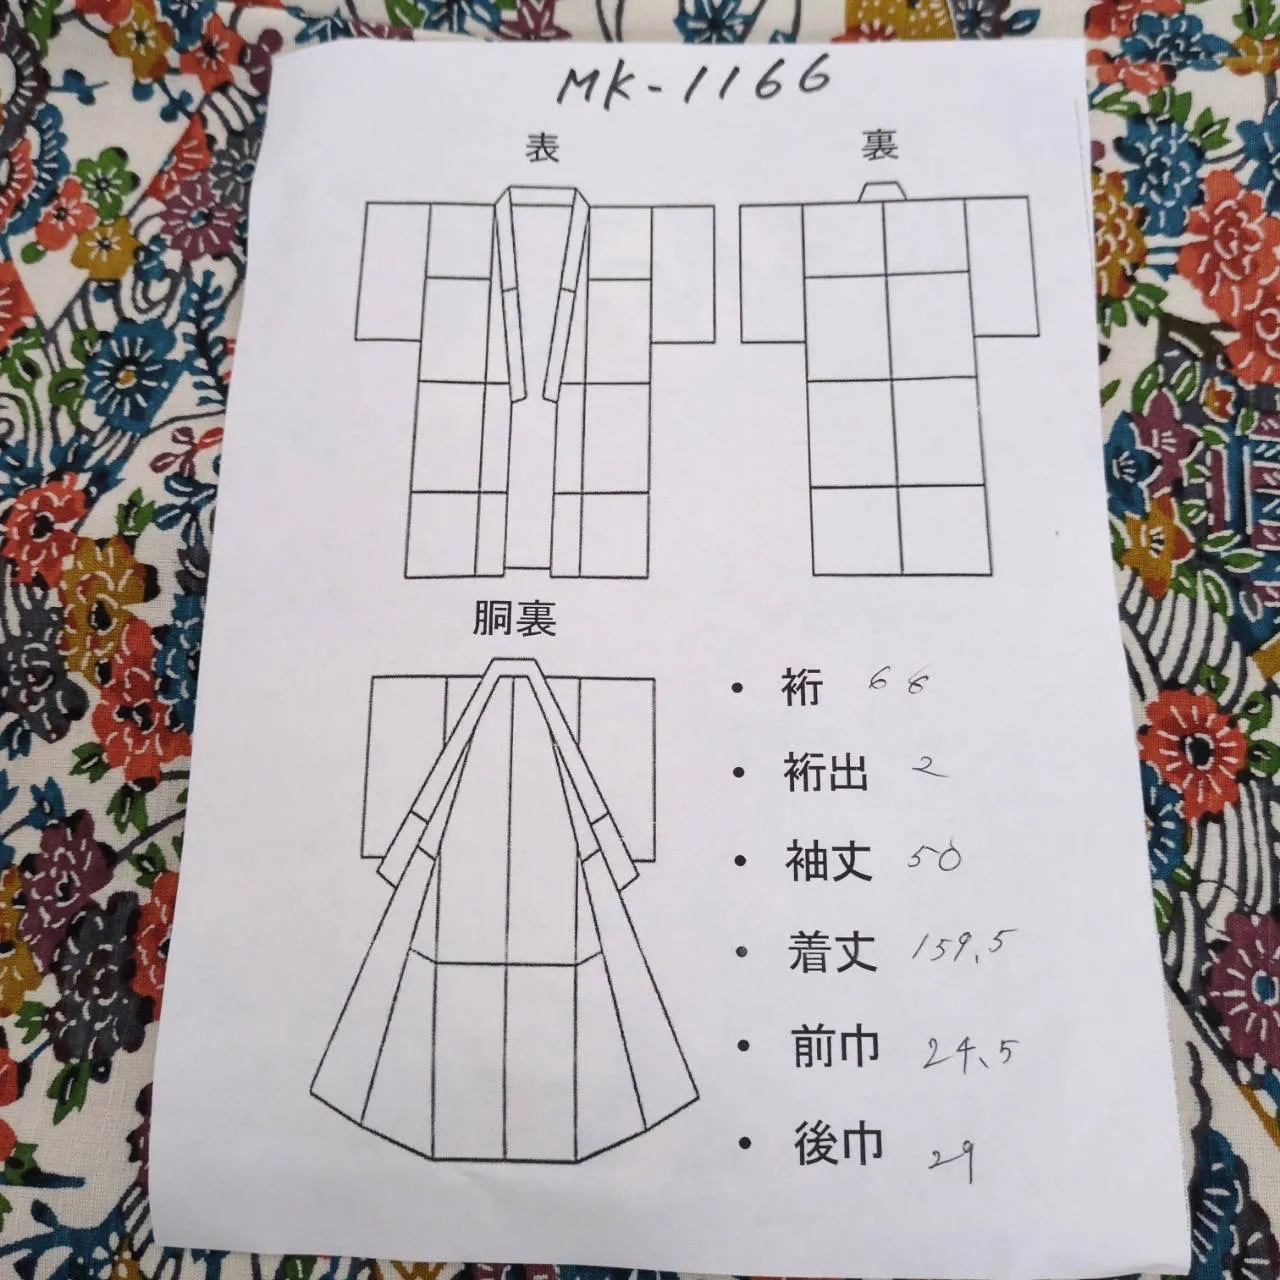 MK-1166
表 裏
胴裏
・裄 68
・裄出 2
・袖丈 50
・着丈 159.5
・前巾 24.5
・後巾 29